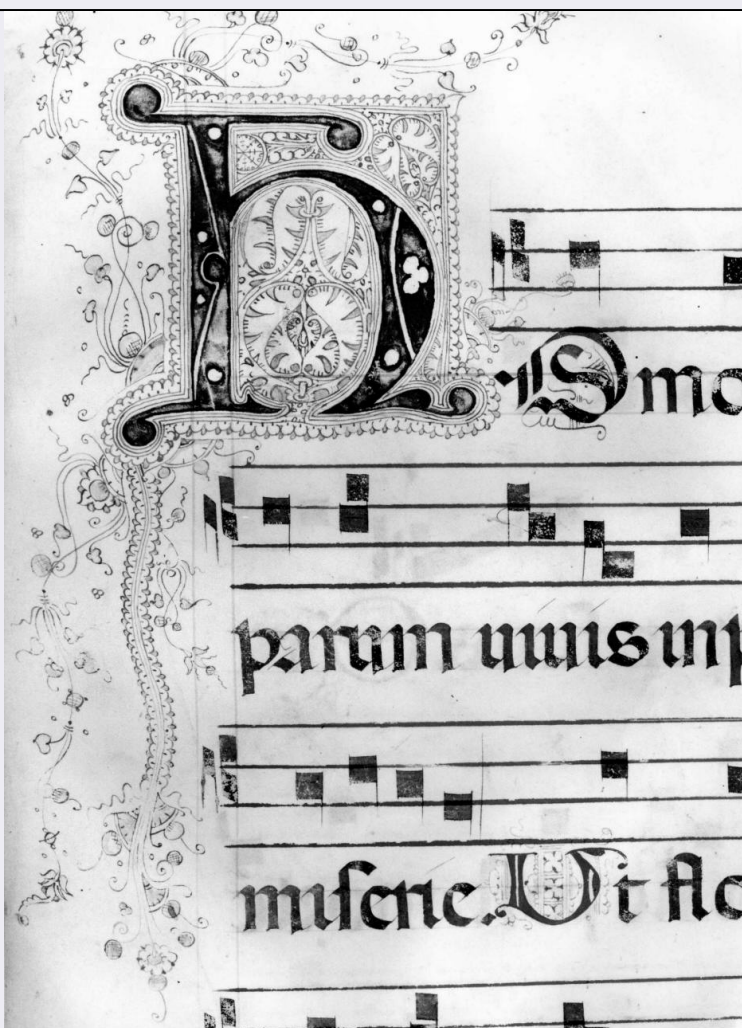 HOmo
parum uiuis inp
miſerie. Ut flo